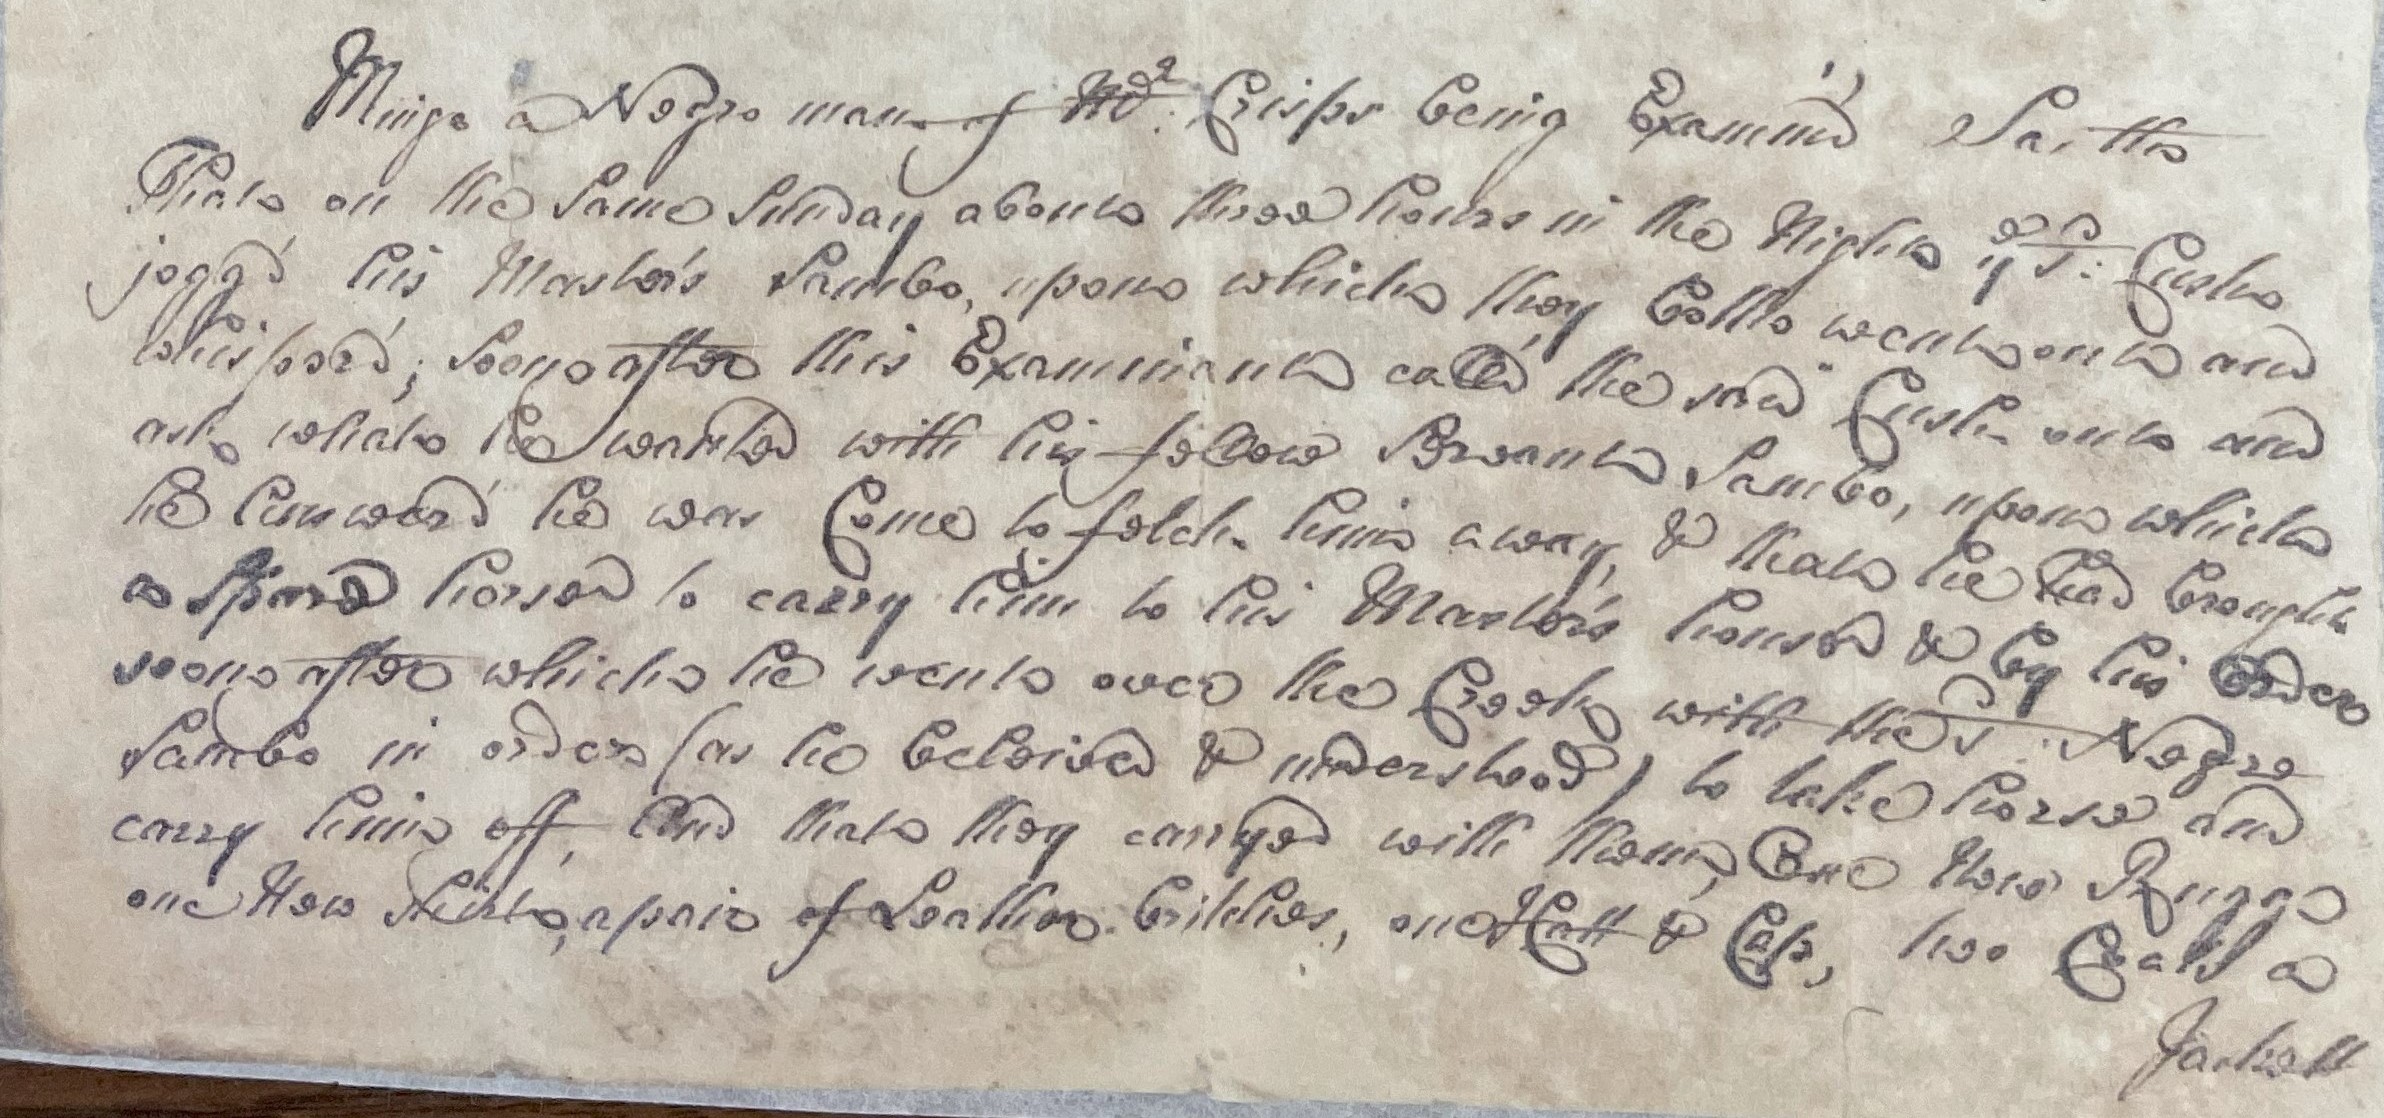 Mingo a Negro man of Md. Crisps being Examin'd Saith
That on the Same Sunday about three hours in the Night ye sd. Cush
jogg'd his Master's Sambo, upon which they both went out and
whisper'd; Soon after this Examinant call'd the said Cush out and
ask what he wanted with his fellow Servant Sambo, upon which
he Answer'd he was Come to fetch him away, & that he had brought
a Spare horse to carry him to his Master's house & by his Order
soon after which he went over the Creek with the sd. Negro
Sambo in order (as he beleived & understood) to take horse and
carry him off, And that they carryed with them, One New Rugg
one New Shirt, a pair of Leather britches, one Hatt & Cap, two Coats a
Jackett